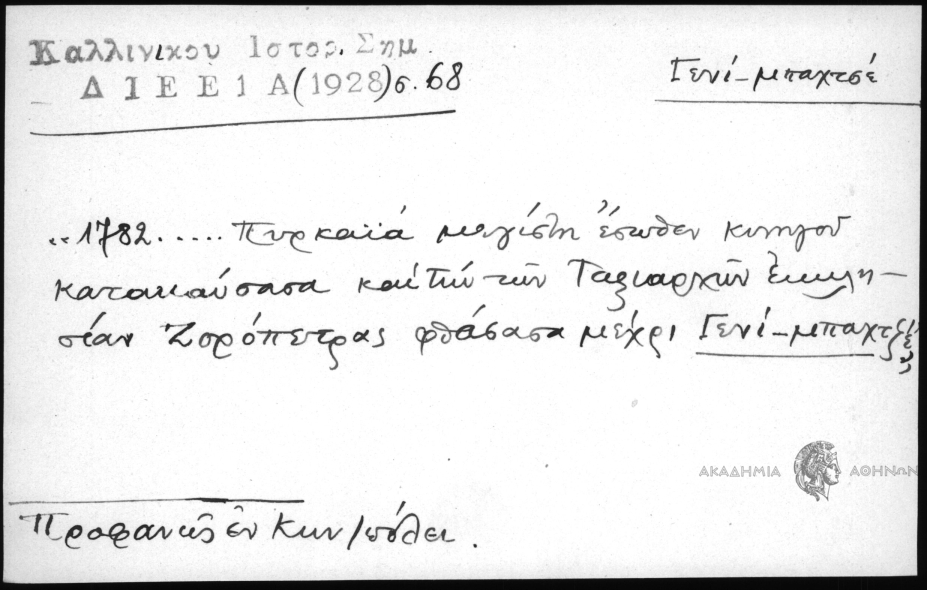 Καλλινικου Ιστορ. Σημ.
Δ Ι Ε Ε 1 Α (1928) σ. 68
Γενί-μπαχτσέ
..1782..... Πυρκαϊά μεγίστη ἔσωθεν κυνηγοῦ
κατακαύσασα καί τήν τῶν Ταξιαρχῶν Ἐκκλη-
σίαν Ζορόπετρας φθάσασα μέχρι Γενί-μπαχτζέ
ΑΚΑΔΗΜΙΑ ΑΘΗΝΩΝ
Προφανῶς ἐν Κων/πόλει.